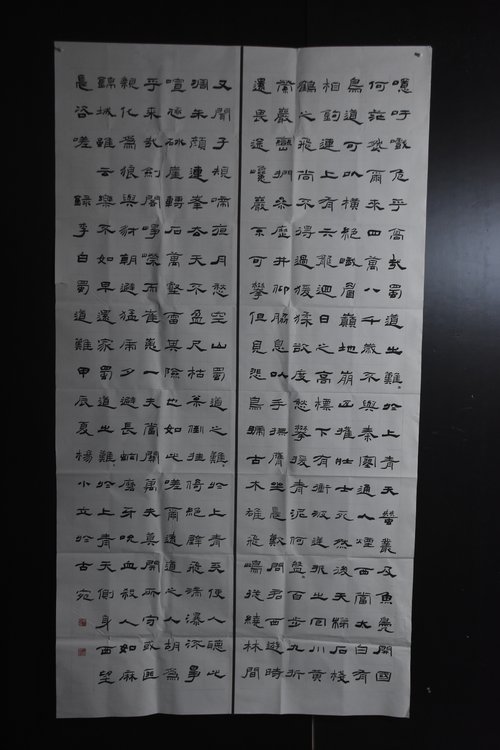 噫吁嚱危乎高哉蜀道之難〻於上青天蠶叢及魚鳧開國
何茫然爾來四萬八千歲不與秦塞通人煙西當太白有
鳥道可以橫絕峨眉巔地崩山摧壯士死然後天梯石棧
相鉤連上有六龍迴日之高標下有衝波逆折之回川黃
鶴之飛尚不得過猿猱欲度愁攀援青泥何盤〻百步九折
縈巖巒捫參歷井仰脇息以手撫膺坐長歎問君西遊時
還畏途巉巖不可攀但見悲鳥號古木雄飛雌從繞林間
又聞子規啼夜月愁空山蜀道之難〻於上青天使人聽此
凋朱顏連峯去天不盈尺枯松倒挂倚絕壁飛湍瀑流爭
喧豗砯崖轉石萬壑雷其險也如此嗟爾遠道之人胡為
乎來哉劍閣崢嶸而崔嵬一夫當關萬夫莫開所守或匪
親化為狼與豺朝避猛虎夕避長蛇磨牙吮血殺人如麻
錦城雖云樂不如早還家蜀道之難〻於上青天側身西望
長咨嗟 錄李白蜀道難甲辰夏楊小立於古宛